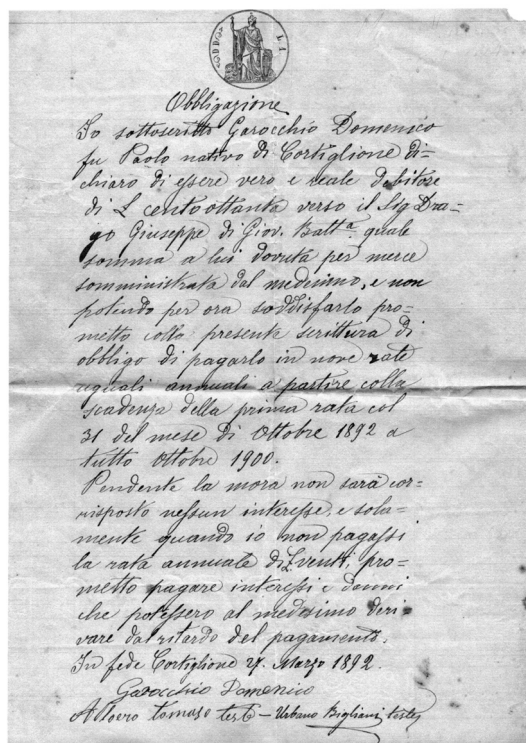 Obbligazione
Io sottoscritto Garocchio Domenico
fu Paolo nativo di Cortiglione di-
chiaro di essere vero e reale debitore
di £ centoottanta verso il Sig Dra-
go Giuseppe di Giov. Batt.a quale
somma a lui dovuta per merce
somministrata dal medesimo, e non
potendo per ora soddisfarlo pro-
metto colla presente scrittura di
obbligo di pagarlo in nove rate
eguali annuali a partire colla
scadenza della prima rata col
31 del mese di Ottobre 1892 a
tutto Ottobre 1900.
Pendente la mora non sarà cor-
risposto nessun interesse, e sola-
mente quando io non pagassi
la rata annuale di £ venti, pro-
metto pagare interessi e danni
che potessero al medesimo deri-
vare dal ritardo del pagamento.
In fede Cortiglione 27. Marzo 1892.
Garocchio Domenico
tomaso teste – Urbano Bigliani teste